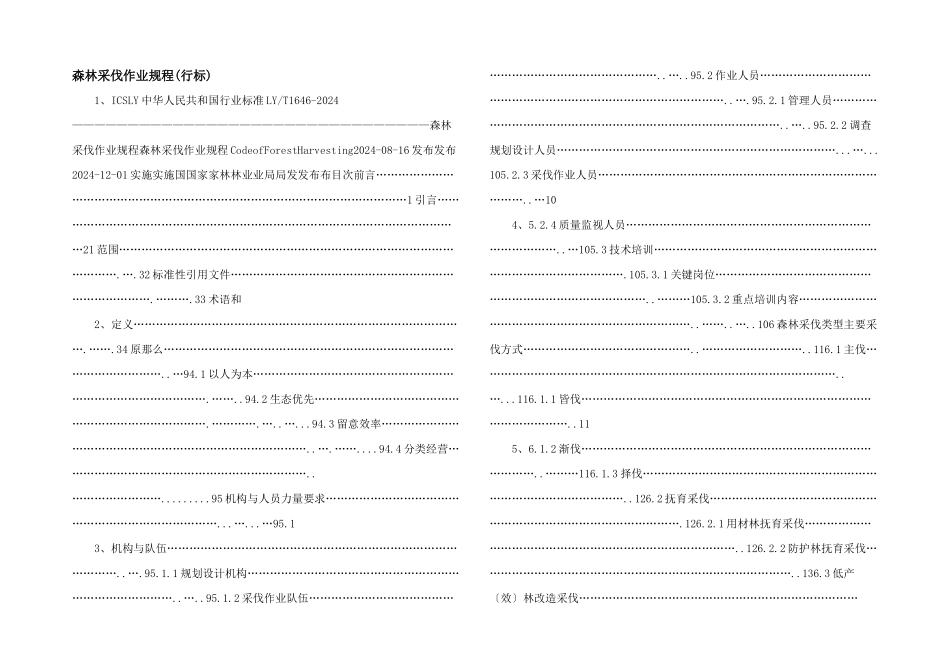 森林采伐作业规程(行标)
1、ICSLY 中华人民共和国行业标准 LY/T1646-2024
————————————————————————————————森林
采伐作业规程森林采伐作业规程 CodeofForestHarvesting2024-08-16 发布发布
2024-12-01 实施实施国国家家林林业业局局发发布布目次前言…………………
…………………………………………………………………………………1 引言……
……………………………………………………………………………………………
…21 范围…………………………………………………………………………………
………….….32 标准性引用文件……………………………………………………
………………….……….33 术语和
2、定义………………………………………………………………………………
….…….34 原那么………………………………………………………………………
……………………..…94.1 以人为本………………………………………………
……………………………….……..94.2 生态优先…………………………………
……………………………….………….…..…...94.3 留意效率…………………
………………………………………………………..….……....94.4 分类经营…
………………………………………………………..
…………………….........95 机构与人员力量要求………………………………
…………………………………...…...…95.1
3、机构与队伍………………………………………………………………………
…………..….95.1.1 规划设计机构…………………………………………………
………………………..…..95.1.2 采伐作业队伍…………………………………
………………………………………..…..95.2 作业人员…………………………
………………………………………………………..….95.2.1 管理人员…………
……………………………………………………………………..…..95.2.2 调查
规划设计人员…………………………………………………………………...…...
105.2.3 采伐作业人员…………………………………………………………………
………..…10
4、5.2.4 质量监视人员……………………………………………………………
………………..…105.3 技术培训……………………………………………………
……………………………….105.3.1 关键岗位……………………………………
……………………………………..………105.3.2 重点培训内容…………………
………………………………………………..……..…..106 森林采伐类型主要采
伐方式………………………………………..………………………..116.1 主伐…
……………………………………………………………………………………..
…...116.1.1 皆伐……………………………………………………………………
…………………..11
5、6.1.2 渐伐………………………………………………………………………
…………..………116.1.3 择伐………………………………………………………
………………………………..126.2 抚育采伐………………………………………
…………………………………………….126.2.1 用材林抚育采伐………………
…………………………………………………………..126.2.2 防护林抚育采伐…
………………………………………………………………………..136.3 低产
〔效〕林改造采伐…………………………………………………………………